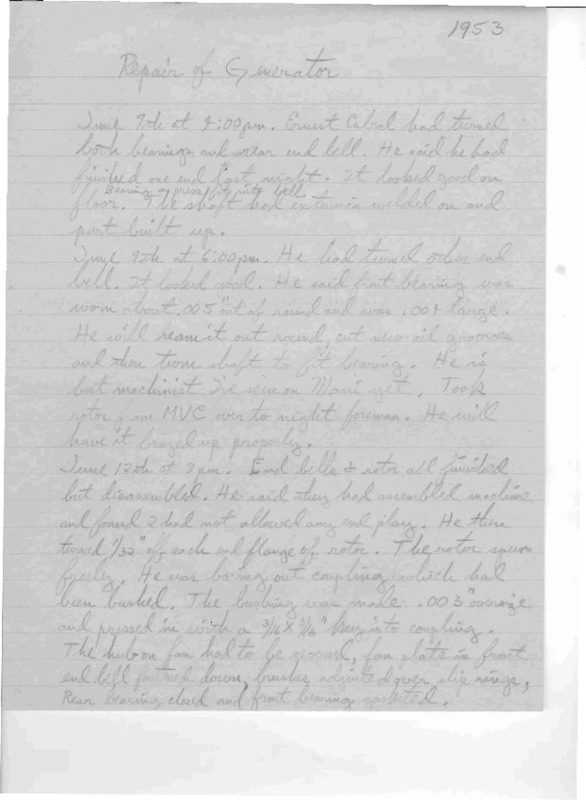 1953
Repair of Generator
June 9th at 4:00pm. Ernest Cabral had turned
both bearings and rear end bell. He said he had
finished one end last night. It looked good on
Bearing a press fit into bell.
floor. The shaft had extension welded on and
part built up.
June 9th at 6:00pm. He had turned other end
bell. It looked good. He said front bearing was
worn about .005" out of round and was .004 large.
He will ream it out round, cut new oil grooves
and then turn shaft to fit bearing. He is
best machinist I've seen on Maui yet. Took
rotor from MVC over to night foreman. He will
have it brazed up properly.
June 12th at 3pm. End bells & rotor all finished
but disassembled. He said they had assembled machine
and found I had not allowed any end play. He then
turned 1/32" off each end flange of rotor. The rotor spun
freely. He was boring out coupling which had
been bushed. The bushing was made .003" oversize
and pressed in with a 3/16 x 3/16" key into coupling.
The hub on fan had to be fan plate in front
end bell down, brushes adjusted over slip rings,
Rear bearing closed and front bearing gasketed.